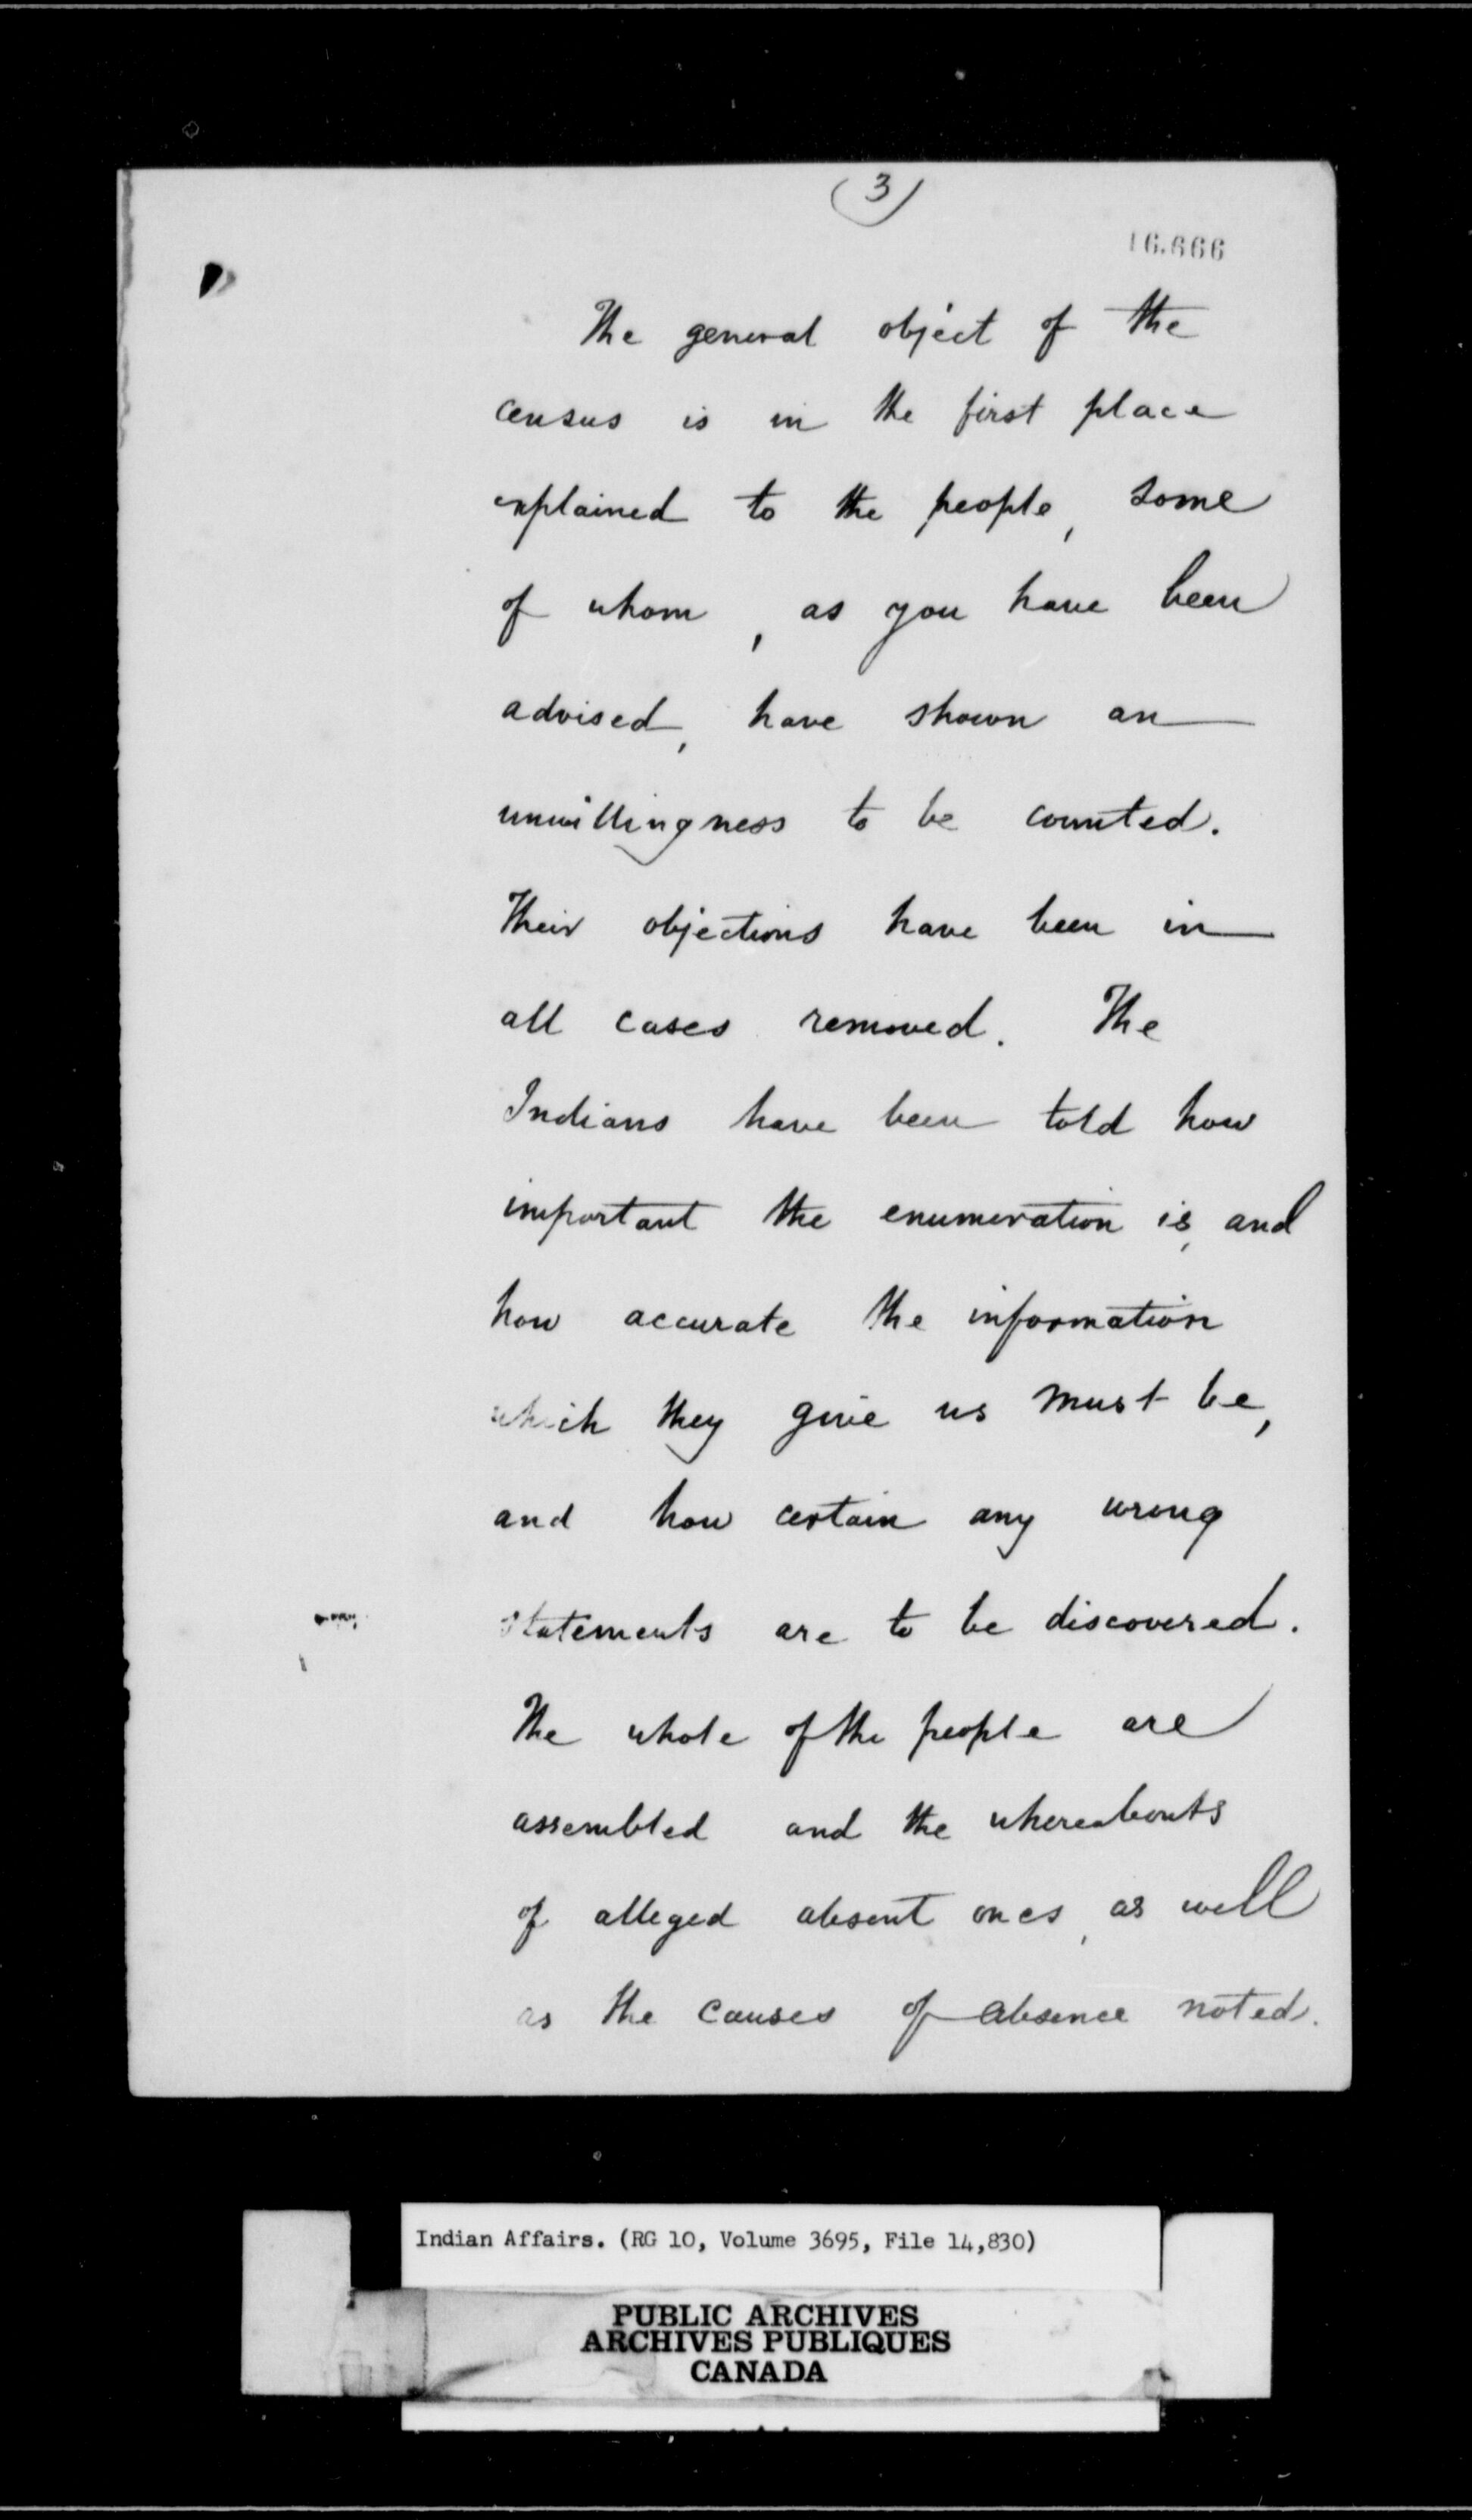 (3)
16.666
The general object of the
census is in the first place
explained to the people, some
of whom, as you have been
advised, have shown an
unwillingness to be counted.
Their objections have been in
all cases removed. The
Indians have been told how
important the enumeration is, and
how accurate the information
which they give us must be,
and how certain any wrong
statements are to be discovered.
The whole of the people are
assembled and the whereabouts
of alleged absent ones, as well
as the causes of absence noted.
Indian Affairs. (RG 10, Volume 3695, File 14,830)
PUBLIC ARCHIVES
ARCHIVES PUBLIQUES
CANADA